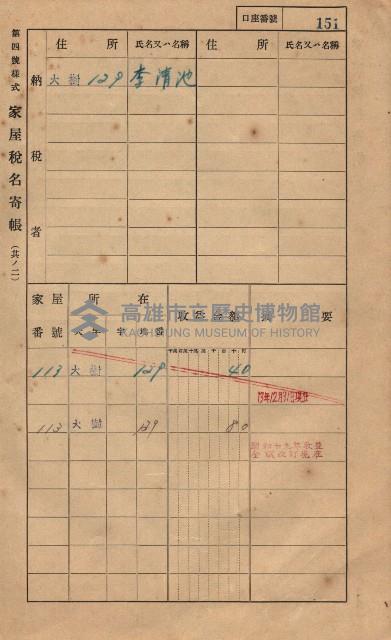 口座番號 151
第四號樣式 家屋稅名寄帳 (其ノ二)
納稅者
住所 氏名又ハ名稱 住所 氏名又ハ名稱
大樹 139 李清池
家屋番號 所在 大字 字 地番 收益金額 摘要
高雄市立歷史博物館
KAOHSIUNG MUSEUM OF HISTORY
113 大樹 139 40
13年12月31日現在
113 大樹 139 80
昭和十九年收益
金額改訂現在